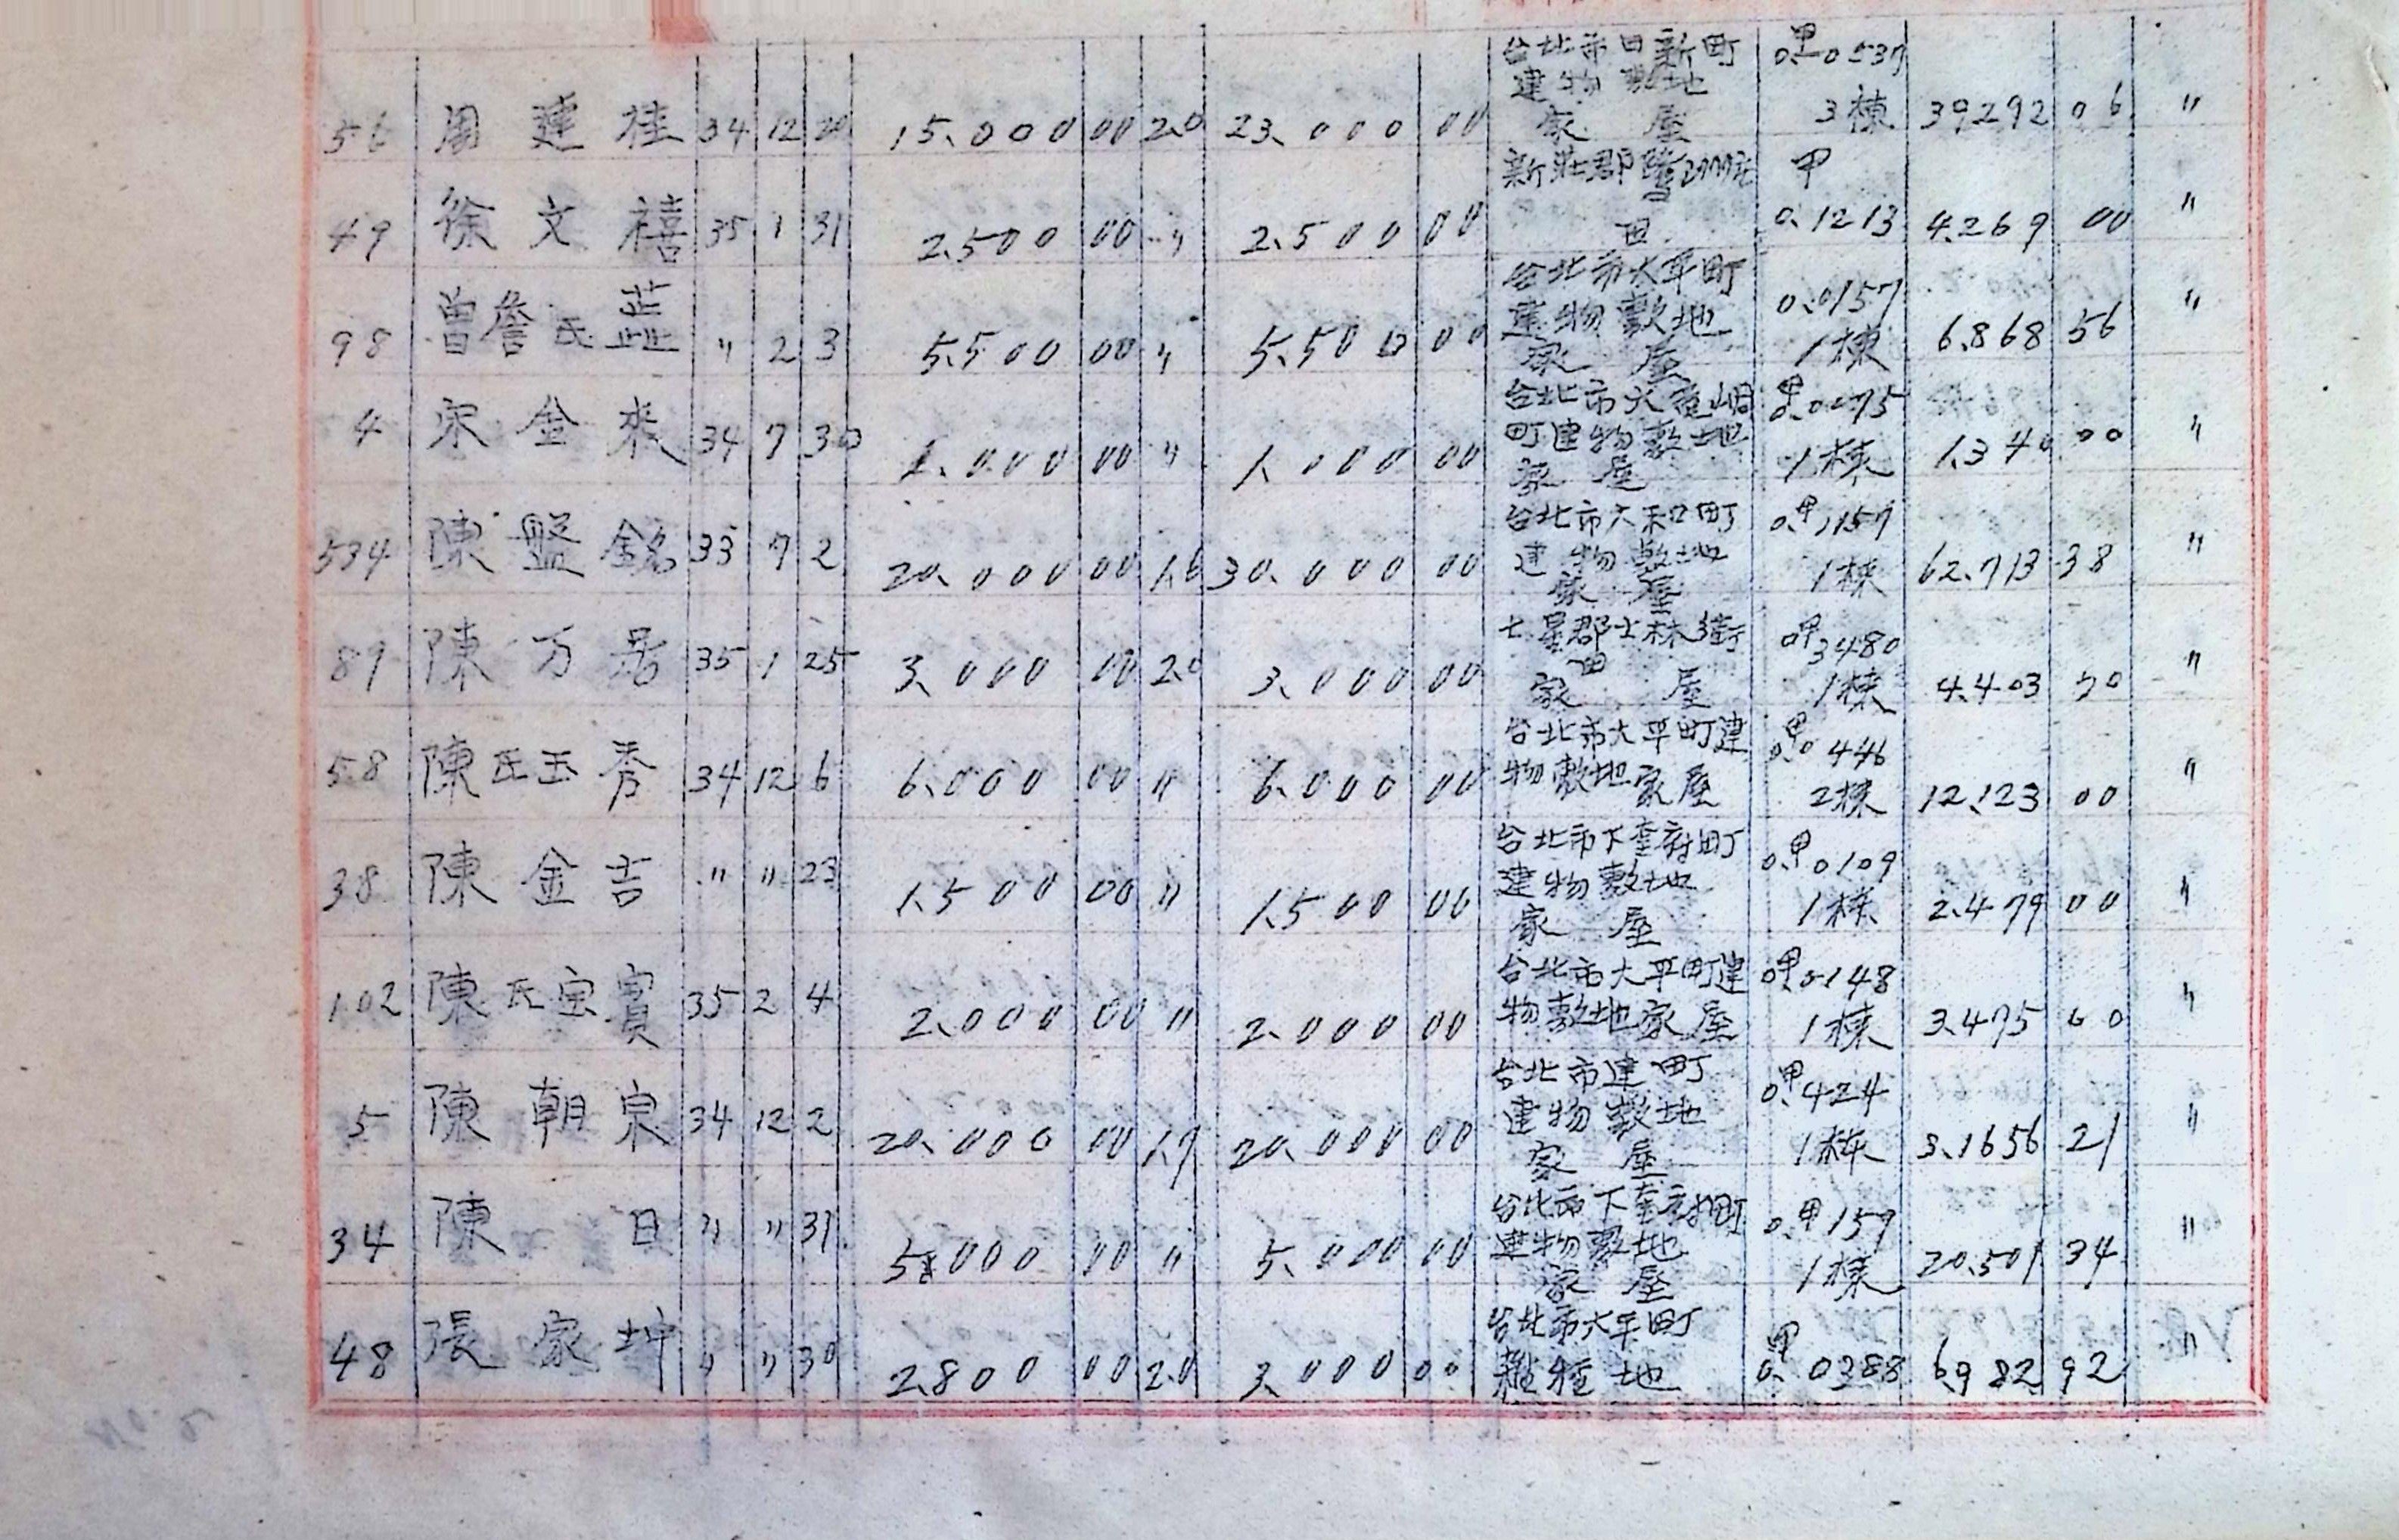 台北市日新町 甲
建物敷地 0.0537
56 周連桂 34 12 20 15,000 00 2.0 23,000 00 家屋 3棟 39292 06 〃
新莊郡鷺洲庄 甲
49 徐文禧 35 1 31 2,500 00 〃 2,500 00 田 0.1213 4,269 00 〃
台北市太平町
建物敷地 0.0157
98 曽詹氏 〃 2 3 5,500 00 〃 5,500 00 家屋 1棟 6,868 56 〃
台北市大龍峒 甲
町建物敷地 0.0075
4 宋金来 34 7 30 1,000 00 〃 1,000 00 家屋 1棟 1,340 00 〃
台北市大和町 甲
建物敷地 0.1157
534 陳盤銘 33 7 2 20,000 00 1.6 30,000 00 家屋 1棟 62,713 38 〃
七星郡士林街 甲
田 0.3480
89 陳万居 35 1 25 3,000 00 2.0 3,000 00 家屋 1棟 4,403 70 〃
台北市太平町建 甲
0.0446
58 陳氏玉秀 34 12 6 6,000 00 〃 6,000 00 物敷地家屋 2棟 12,123 00 〃
台北市下奎府町 甲
建物敷地 0.0109
38 陳金吉 〃 〃 23 1,500 00 〃 1,500 00 家屋 1棟 2,479 00 〃
台北市太平町建 甲
0.0148
102 陳氏宝賓 35 2 4 2,000 00 〃 2,000 00 物敷地家屋 1棟 3,475 60 〃
台北市建町 甲
建物敷地 0.424
5 陳朝宗 34 12 2 20,000 00 1.9 20,000 00 家屋 1棟 3,1656 21 〃
台北市下奎府町 甲
建物敷地 0.159
34 陳日 〃 〃 31 5,000 00 〃 5,000 00 家屋 1棟 20,501 34 〃
台北市太平町 甲
48 張家坤 〃 〃 30 2,800 00 2.0 3,000 00 雜種地 0.0388 6,982 92 〃